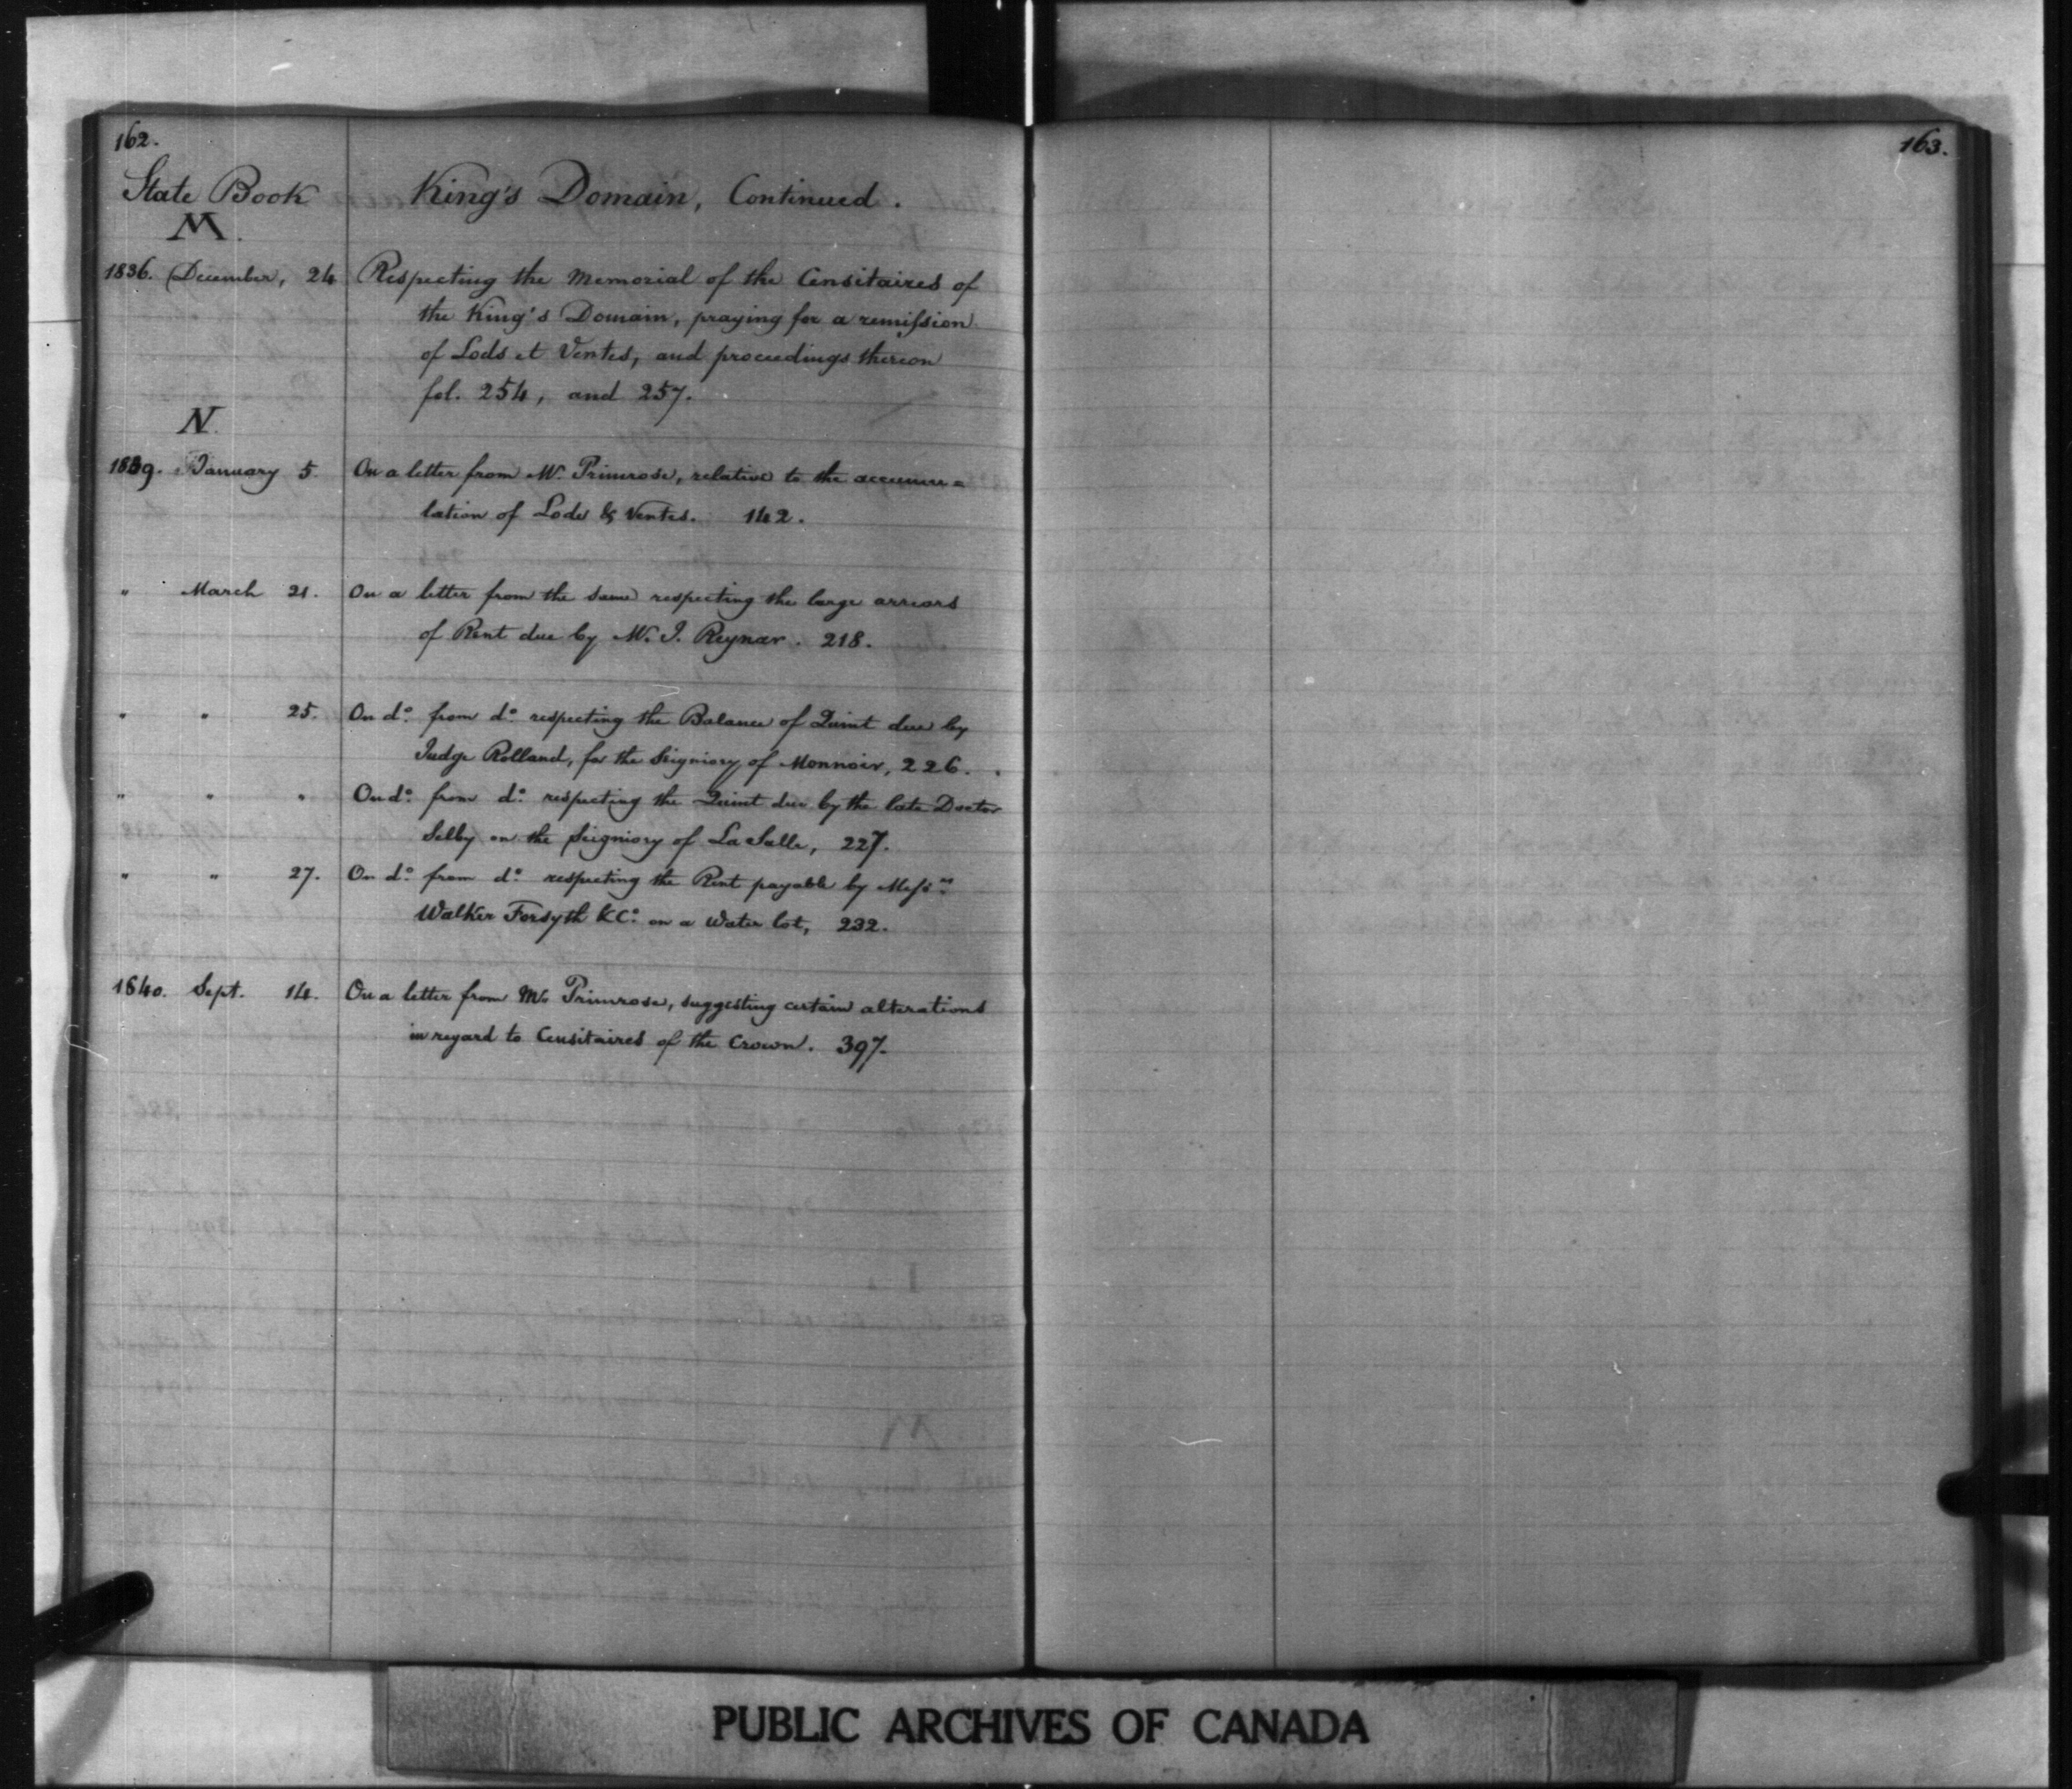 162.
State Book
King's Domain, Continued.
M.
1836. December, 24 Respecting the Memorial of the Censitaires of
the King's Domain, praying for a remission
of Lods et Ventes, and proceedings thereon
fol. 254, and 257.
N.
1839. January 5. On a letter from Mr. Primrose, relative to the accumu=
lation of Lods & Ventes. 142.
" March 21. On a letter from the same respecting the large arrears
of Rent due by Mr. J. Reynar. 218.
" " 25. On do. from do. respecting the Balance of Quint due by
Judge Rolland, for the Seigniory of Monnoir, 226.
" " " On do. from do. respecting the Quint due by the late Doctor
Selby on the Seigniory of La Salle, 227.
" " 27. On do. from do. respecting the Rent payable by Messrs.
Walker Forsyth & Co. on a Water lot, 232.
1840. Sept. 14. On a letter from Mr. Primrose, suggesting certain alterations
in regard to Censitaires of the Crown. 397.
163.
PUBLIC ARCHIVES OF CANADA